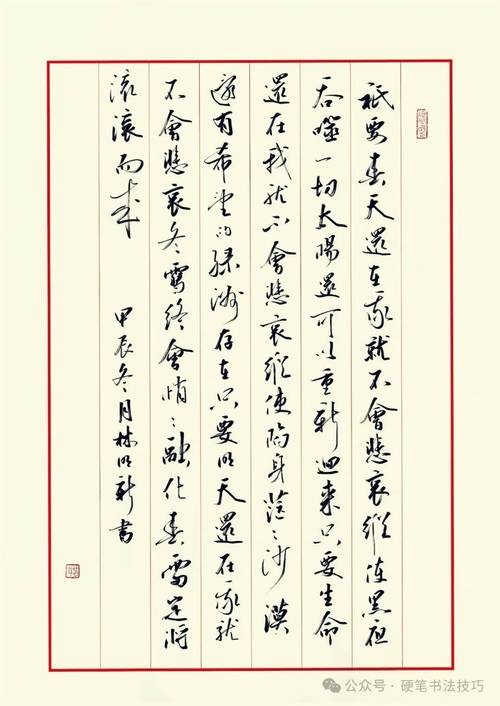 祇要春天還在我就不會悲哀縱使黑夜
吞噬一切太陽還可以重新迴来只要生命
還在我就不會悲哀縱使陷身茫〻沙漠
還有希望的綠洲存在只要明天還在我就
不會悲哀冬雪終會悄〻融化春雷定將
滾滾而来
甲辰冬月林明新書
公众号·硬笔书法技巧